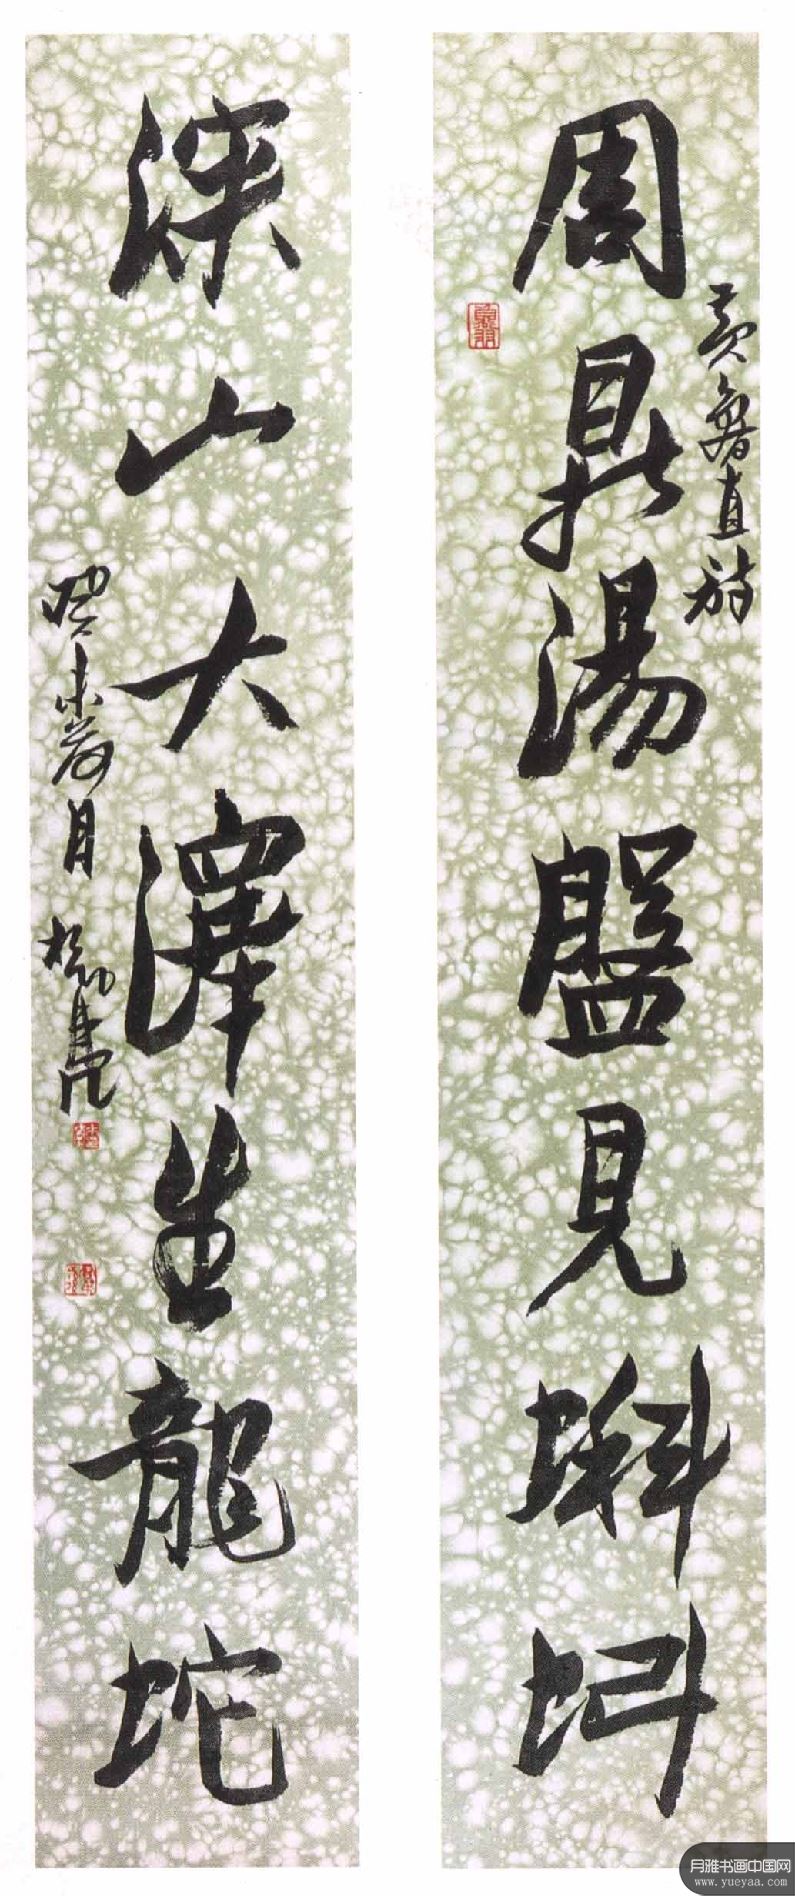 周鼎湯盤見蝌蚪
黃魯直詩
深山大澤生龍蛇
癸未荷月
月雅书画中国网
www.yueyaa.com